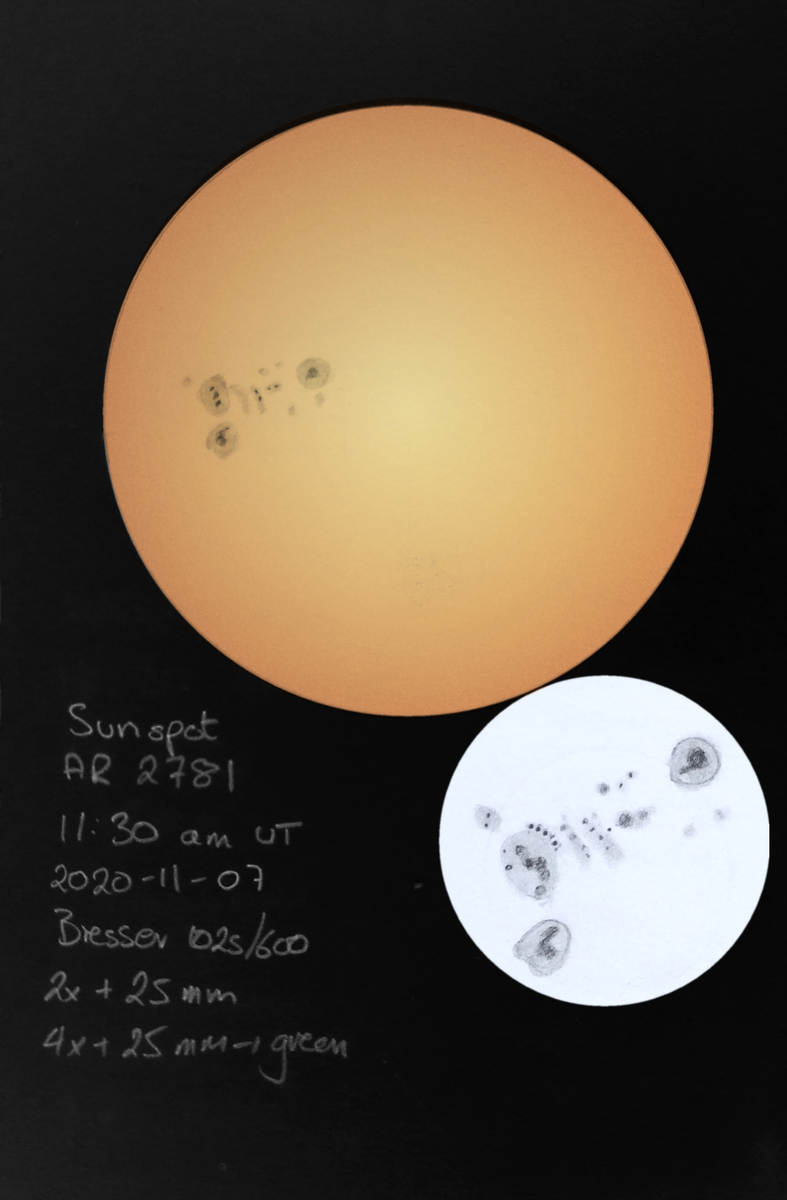 Sunspot
AR 2781
11:30 am UT
2020-11-07
Bresser 102s/600
2x + 25 mm
4x + 25 mm → green